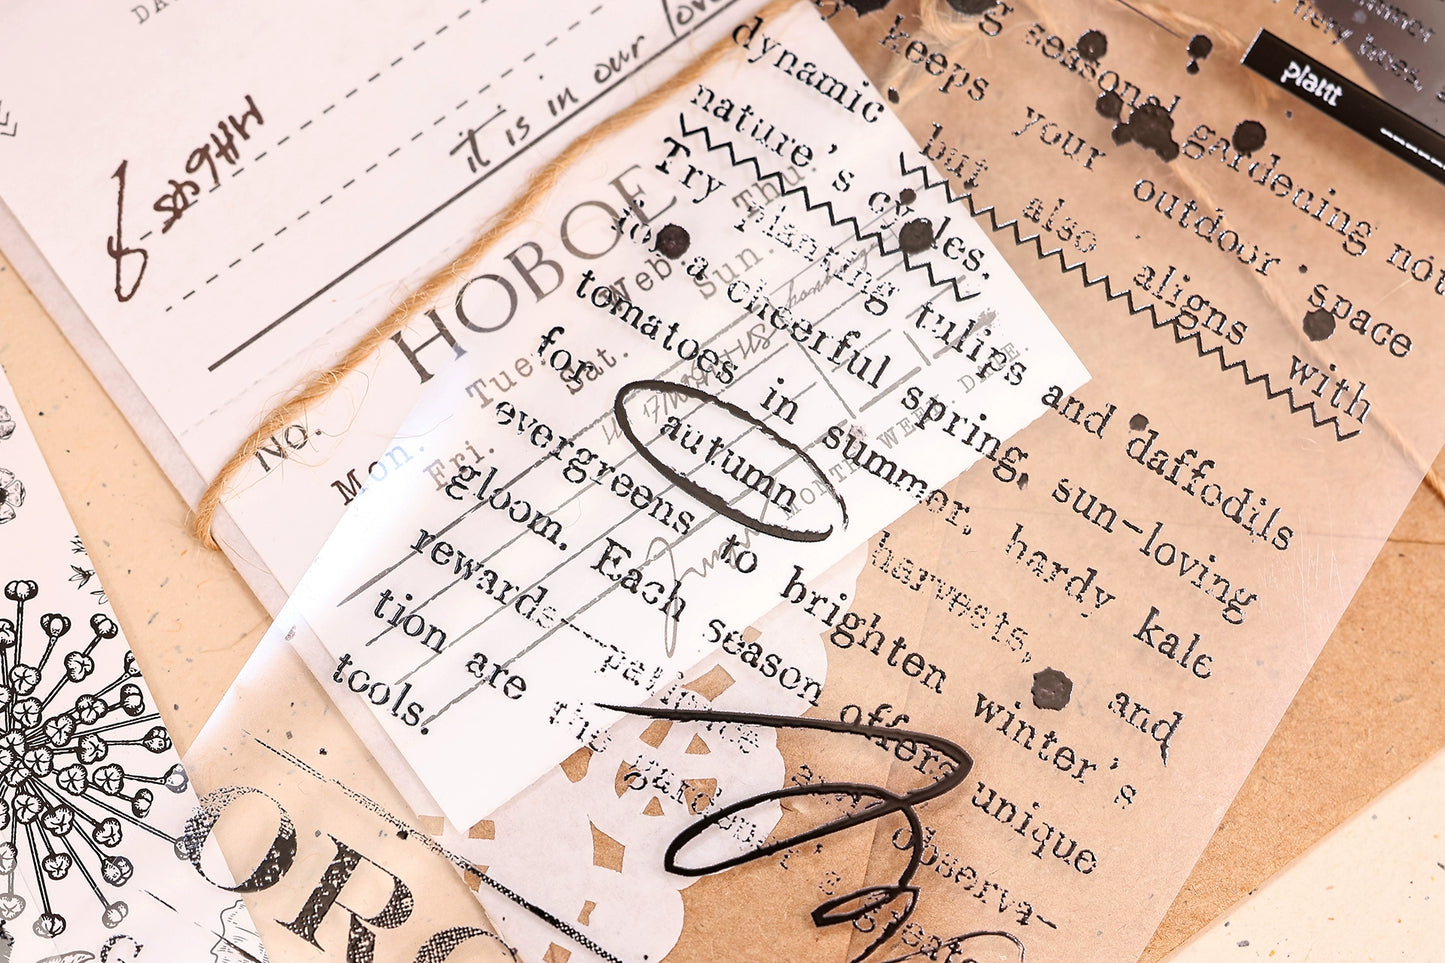 it is in our
HOBOE
No.
Mon.
Tue.
Web.
Thu.
Fri.
Sat.
Sun.
MONTH. WEEK. DATE.
plant
seasonal gardening not
keeps your outdoor space
dynamic but also aligns with
nature's cycles.
Try planting tulips and daffodils
for a cheerful spring, sun-loving
tomatoes in summer, hardy kale
for autumn harvests, and
evergreens to brighten winter's
gloom. Each season offers unique
rewards—patience and observa-
tion are the gardener's great
tools.